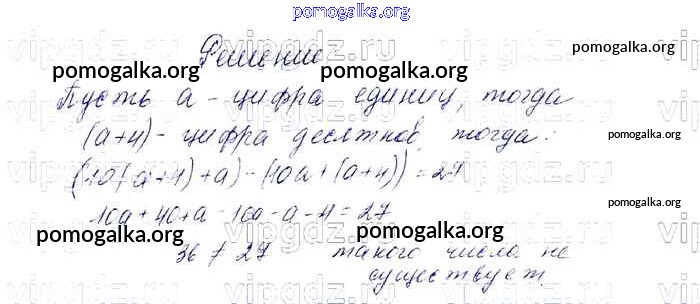 pomogalka.org
Решение
pomogalka.org pomogalka.org pomogalka.org
Пусть a - цифра единиц, тогда
(a+4) - цифра десятков, тогда:
pomogalka.org
(10(a+4)+a)-(10a+(a+4))=27
pomogalka.org
10a+40+a-10a-a-4=27
pomogalka.org pomogalka.org pomogalka.org
36 ≠ 27 такого числа не
существует.